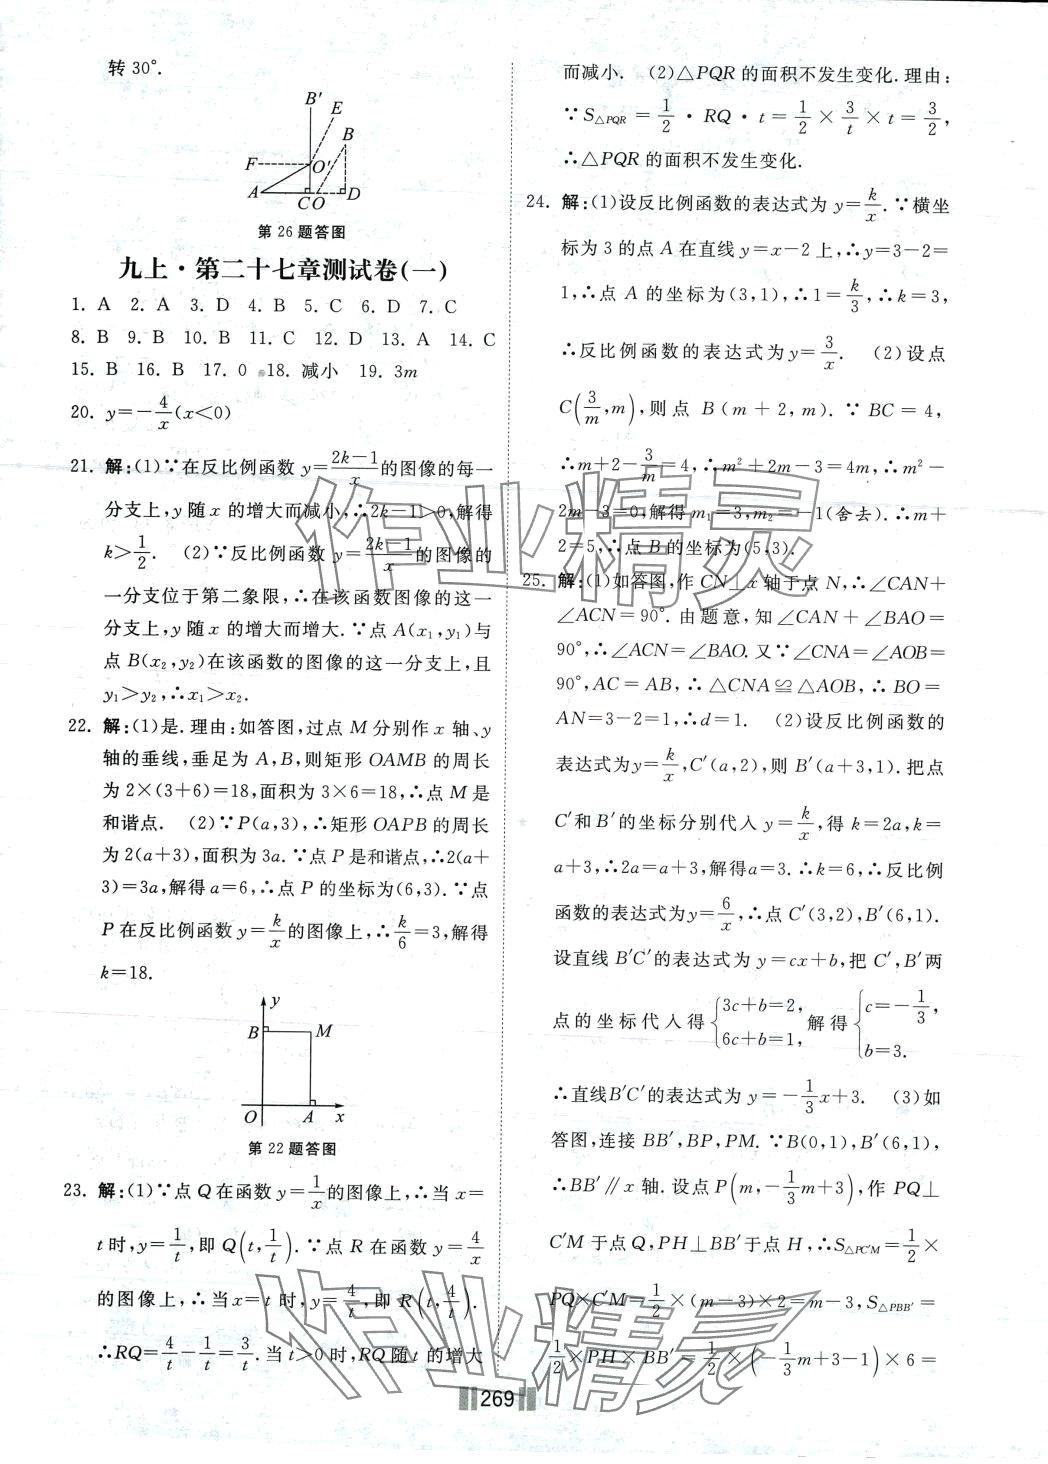 转30°.
B′
E
B
F
O′
A
C O
D
第26题答图
九上·第二十七章测试卷(一)
1. A 2. A 3. D 4. B 5. C 6. D 7. C
8. B 9. B 10. B 11. C 12. D 13. A 14. C
15. B 16. B 17. 0 18. 减小 19. 3m
20. y=-4/x(x<0)
21. 解:(1)∵在反比例函数y=(2k-1)/x的图像的每一
分支上,y随x的增大而减小,∴2k-1>0,解得
k>1/2. (2)∵反比例函数y=(2k-1)/x的图像的
一分支位于第二象限,∴在该函数图像的这一
分支上,y随x的增大而增大.∵点A(x₁,y₁)与
点B(x₂,y₂)在该函数的图像的这一分支上,且
y₁>y₂,∴x₁>x₂.
22. 解:(1)是.理由:如答图,过点M分别作x轴、y
轴的垂线,垂足为A,B,则矩形OAMB的周长
为2×(3+6)=18,面积为3×6=18,∴点M是
和谐点. (2)∵P(a,3),∴矩形OAPB的周长
为2(a+3),面积为3a.∵点P是和谐点,∴2(a+
3)=3a,解得a=6,∴点P的坐标为(6,3).∵点
P在反比例函数y=k/x的图像上,∴k/6=3,解得
k=18.
y
B
M
O
A
x
第22题答图
23. 解:(1)∵点Q在函数y=1/x的图像上,∴当x=
t时,y=1/t,即Q(t,1/t).∵点R在函数y=4/x
的图像上,∴当x=t时,y=4/t,即R(t,4/t).
∴RQ=4/t-1/t=3/t.当t>0时,RQ随t的增大
而减小. (2)△PQR的面积不发生变化.理由:
∵S△PQR=1/2·RQ·t=1/2×3/t×t=3/2,
∴△PQR的面积不发生变化.
24. 解:(1)设反比例函数的表达式为y=k/x.∵横坐
标为3的点A在直线y=x-2上,∴y=3-2=
1,∴点A的坐标为(3,1),∴1=k/3,∴k=3,
∴反比例函数的表达式为y=3/x. (2)设点
C(3/m,m),则点B(m+2,m).∵BC=4,
∴m+2-3/m=4,∴m²+2m-3=4m,∴m²-
2m-3=0,解得m₁=3,m₂=-1(舍去).∴m+
2=5,∴点B的坐标为(5,3).
25. 解:(1)如答图,作CN⊥x轴于点N,∴∠CAN+
∠ACN=90°.由题意,知∠CAN+∠BAO=
90°,∴∠ACN=∠BAO.又∵∠CNA=∠AOB=
90°,AC=AB,∴△CNA≌△AOB,∴BO=
AN=3-2=1,∴d=1. (2)设反比例函数的
表达式为y=k/x,C′(a,2),则B′(a+3,1).把点
C′和B′的坐标分别代入y=k/x,得k=2a,k=
a+3,∴2a=a+3,解得a=3.∴k=6,∴反比例
函数的表达式为y=6/x,∴点C′(3,2),B′(6,1).
设直线B′C′的表达式为y=cx+b,把C′,B′两
点的坐标代入得{3c+b=2, 6c+b=1, 解得{c=-1/3, b=3.
∴直线B′C′的表达式为y=-1/3x+3. (3)如
答图,连接BB′,BP,PM.∵B(0,1),B′(6,1),
∴BB′∥x轴.设点P(m,-1/3m+3),作PQ⊥
C′M于点Q,PH⊥BB′于点H,∴S△PC′M=1/2×
PQ×C′M=1/2×(m-3)×2=m-3,S△PBB′=
1/2×PH×BB′=1/2×(-1/3m+3-1)×6=
269
作业精灵
作业精灵